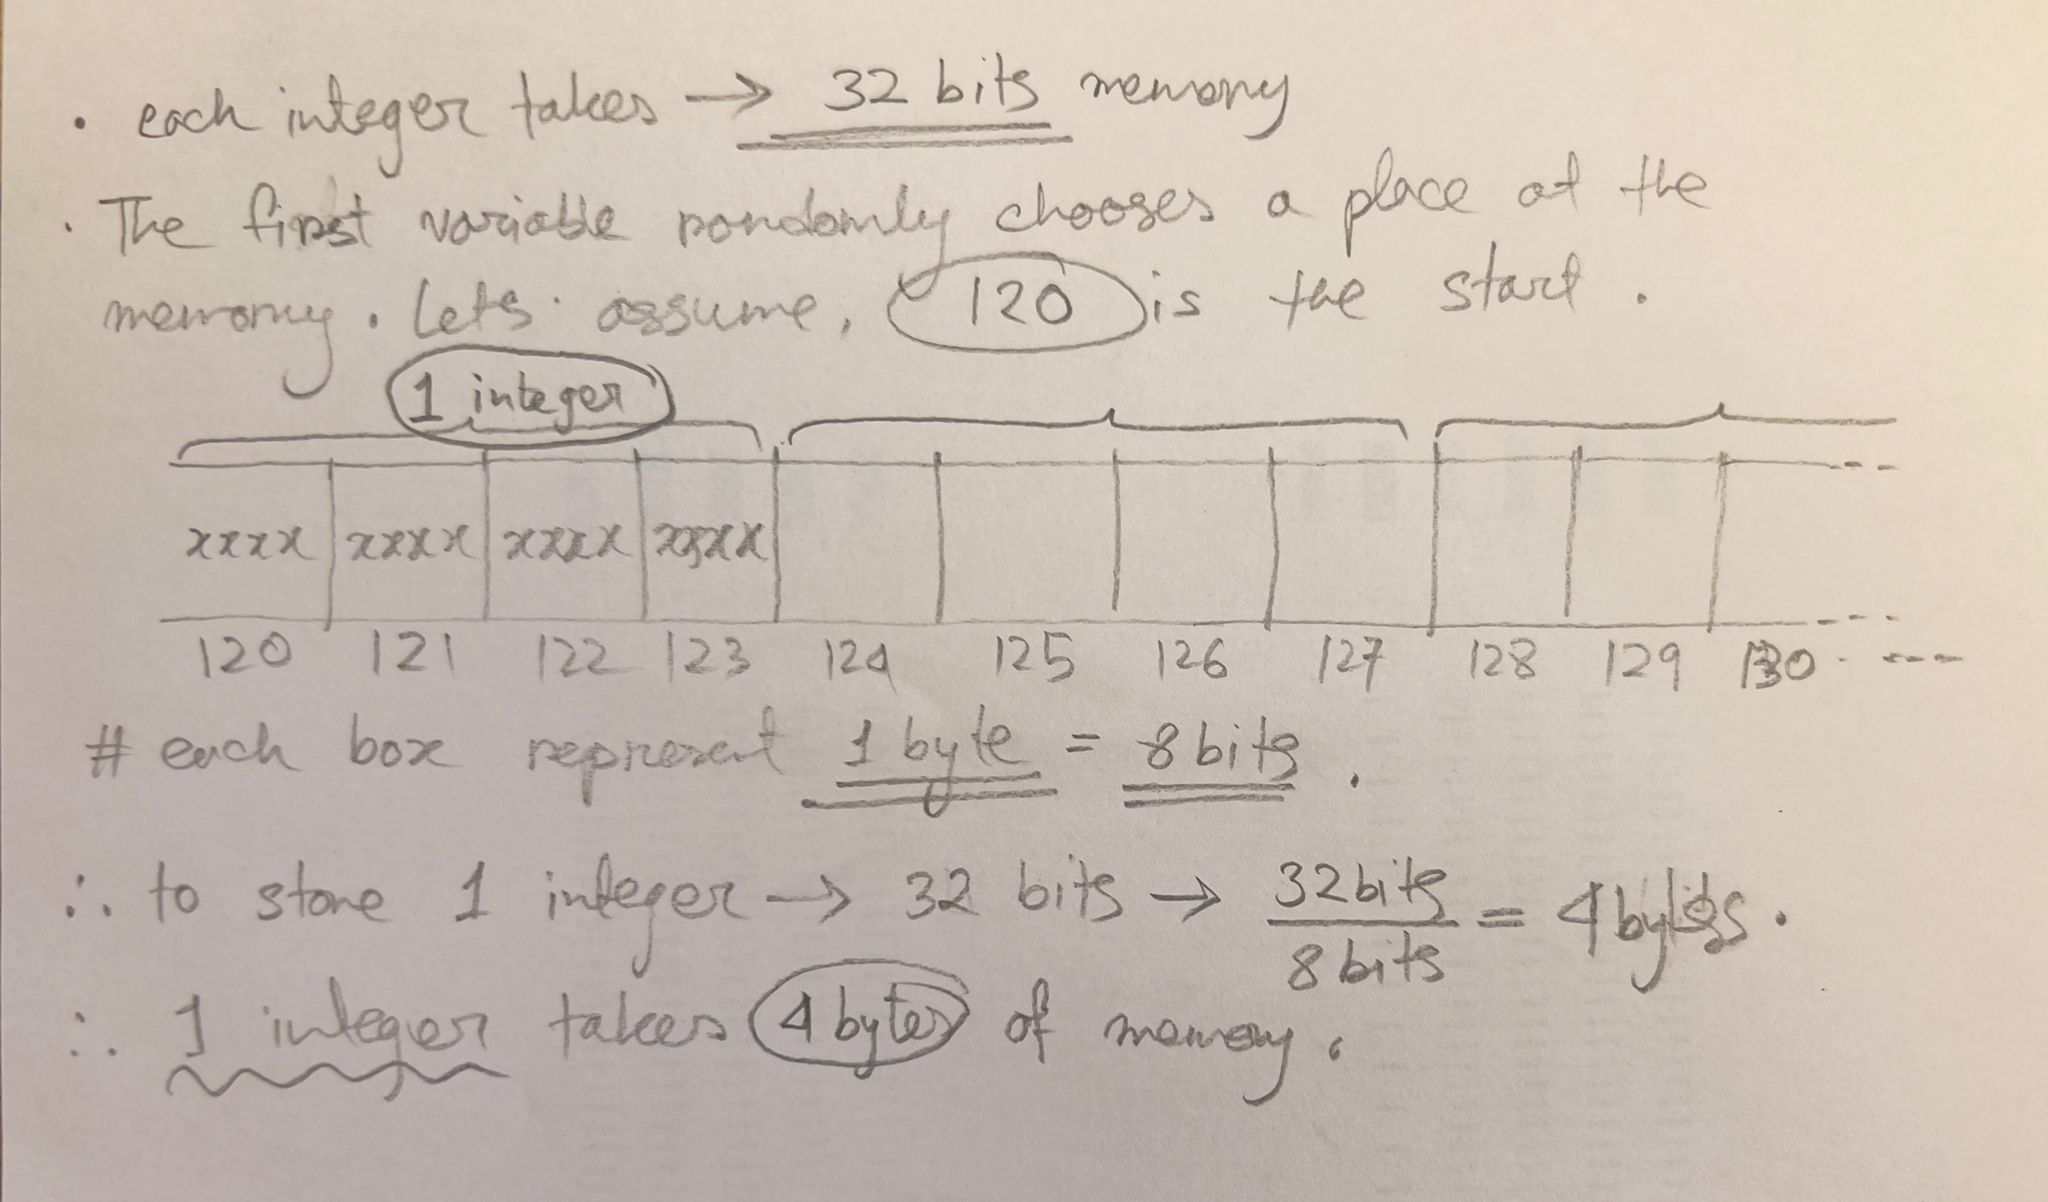 · each integer takes → 32 bits memory
· The first variable randomly chooses a place at the
memory. Lets assume, 120 is the start.
1 integer
xxxx xxxx xxxx xxxx
120 121 122 123 124 125 126 127 128 129 130 - ---
# each box represent 1 byte = 8 bits.
∴ to store 1 integer → 32 bits → 32bits/8bits = 4 bytes.
∴ 1 integer takes 4 bytes of memory.